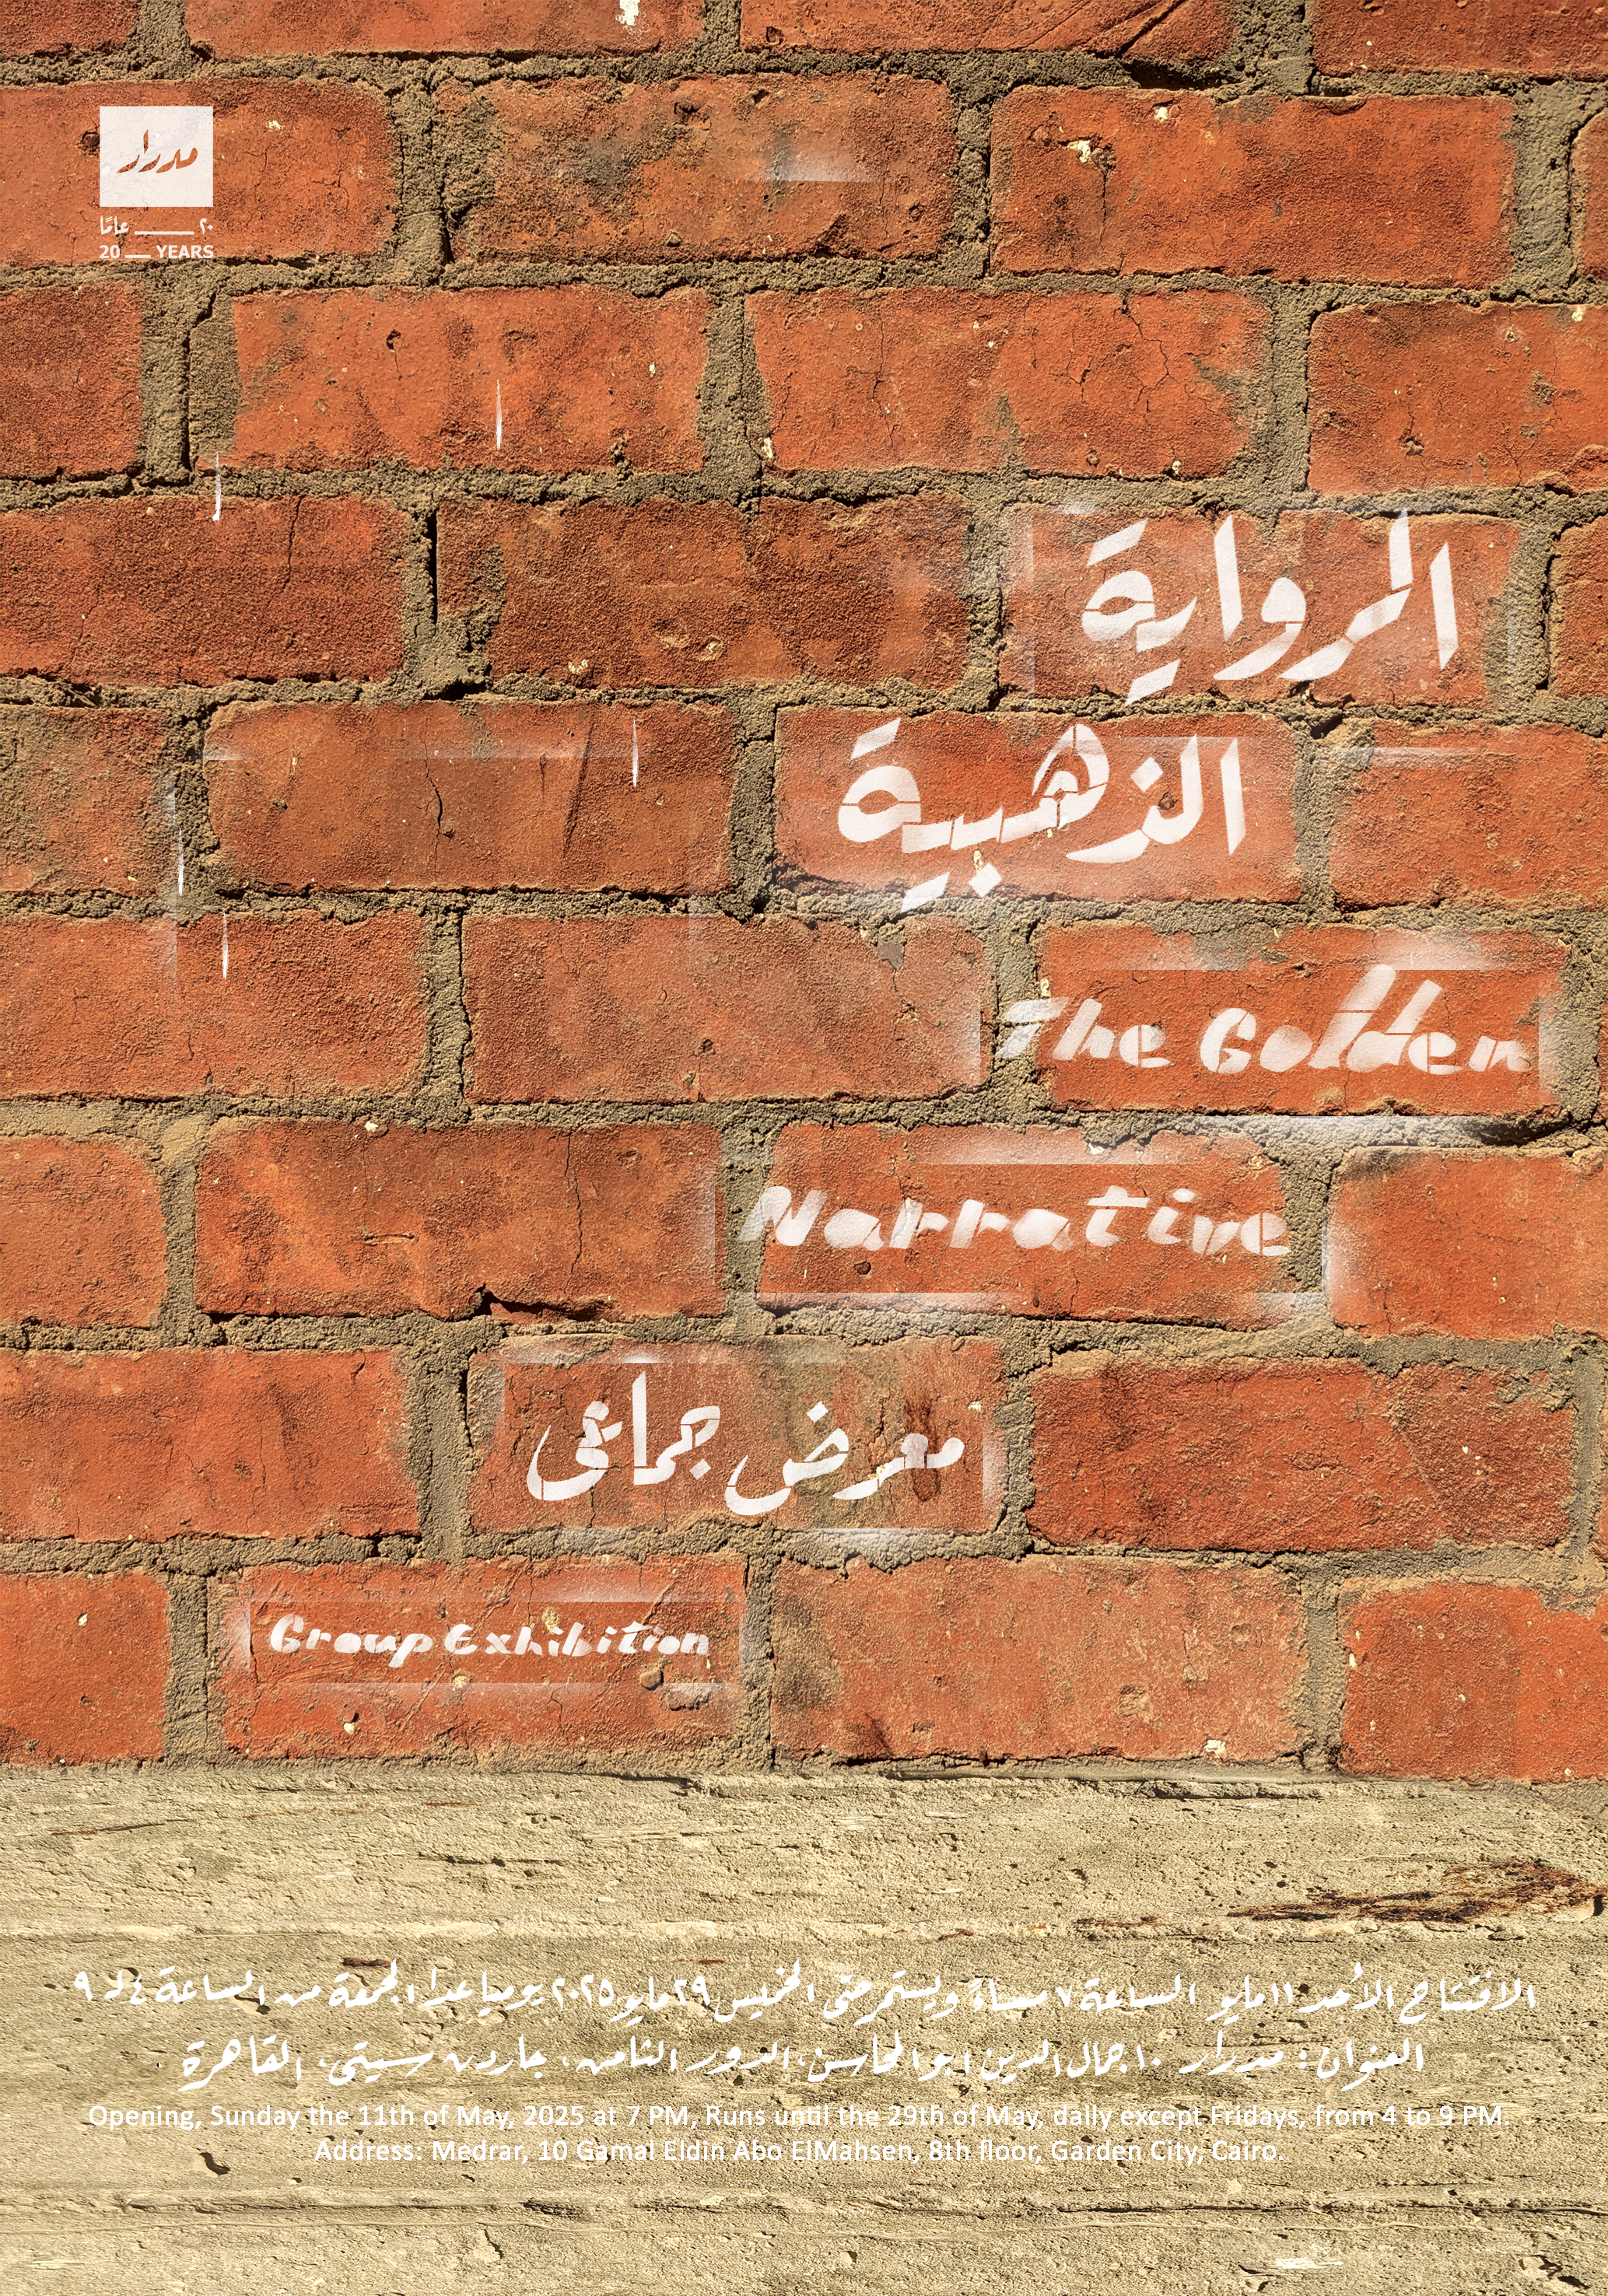 مدرار
٢٠ ــــ عامًا
20 __ YEARS
الرواية
الذهبية
The Golden
Narrative
معرض جماعي
Group Exhibition
الافتتاح الأحد ١١ مايو الساعة ٧ مساءً ويستمر حتى الخميس ٢٩ مايو ٢٠٢٥ يوميا عدا الجمعة من الساعة ٤ لـ ٩
العنوان: مدرار ١٠ جمال الدين ابو المحاسن، الدور الثامن، جاردن سيتي، القاهرة
Opening, Sunday the 11th of May, 2025 at 7 PM, Runs until the 29th of May, daily except Fridays, from 4 to 9 PM.
Address: Medrar, 10 Gamal Eldin Abo ElMahsen, 8th floor, Garden City, Cairo.